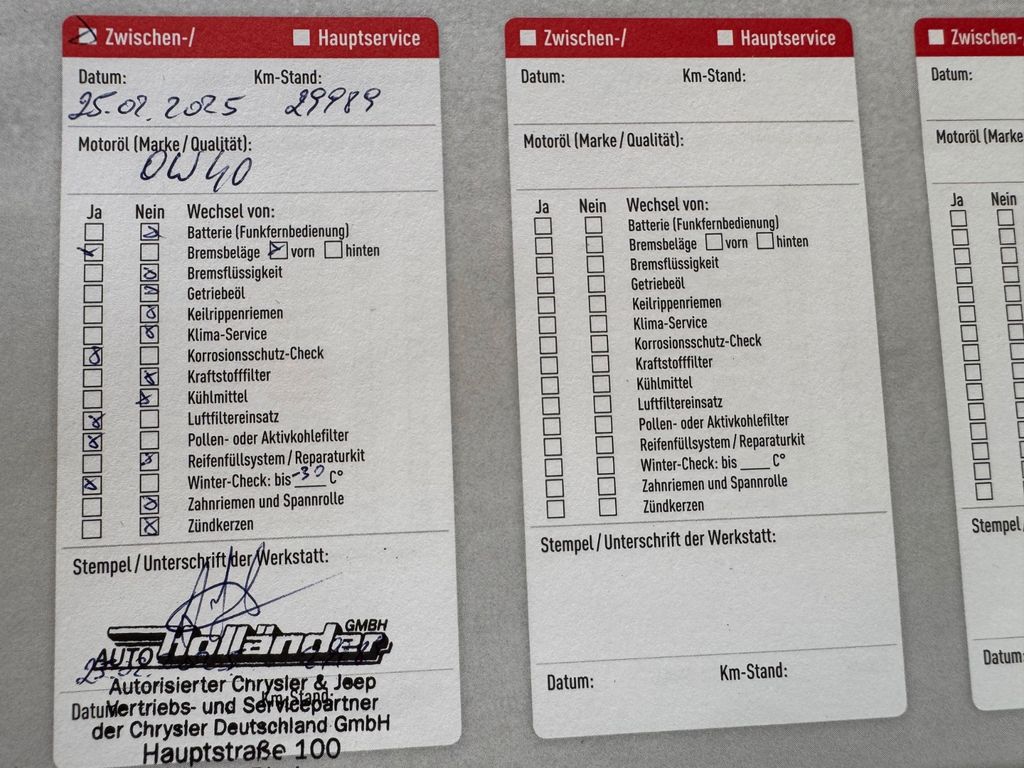 Zwischen-/ Hauptservice
Datum: Km-Stand:
25.02.2025 29989
Motoröl (Marke / Qualität):
0W40
Ja Nein Wechsel von:
Batterie (Funkfernbedienung)
Bremsbeläge vorn hinten
Bremsflüssigkeit
Getriebeöl
Keilrippenriemen
Klima-Service
Korrosionsschutz-Check
Kraftstofffilter
Kühlmittel
Luftfiltereinsatz
Pollen- oder Aktivkohlefilter
Reifenfüllsystem / Reparaturkit
Winter-Check: bis -30 C°
Zahnriemen und Spannrolle
Zündkerzen
Stempel / Unterschrift der Werkstatt:
AUTO Holländer GMBH
Autorisierter Chrysler & Jeep
Datum: Km-Stand:
Vertriebs- und Servicepartner
der Chrysler Deutschland GmbH
Hauptstraße 100
Zwischen-/ Hauptservice
Datum: Km-Stand:
Motoröl (Marke / Qualität):
Ja Nein Wechsel von:
Batterie (Funkfernbedienung)
Bremsbeläge vorn hinten
Bremsflüssigkeit
Getriebeöl
Keilrippenriemen
Klima-Service
Korrosionsschutz-Check
Kraftstofffilter
Kühlmittel
Luftfiltereinsatz
Pollen- oder Aktivkohlefilter
Reifenfüllsystem / Reparaturkit
Winter-Check: bis ____ C°
Zahnriemen und Spannrolle
Zündkerzen
Stempel / Unterschrift der Werkstatt:
Datum: Km-Stand:
Zwischen-
Datum:
Motoröl (Marke
Ja Nein
Stempel
Datum: